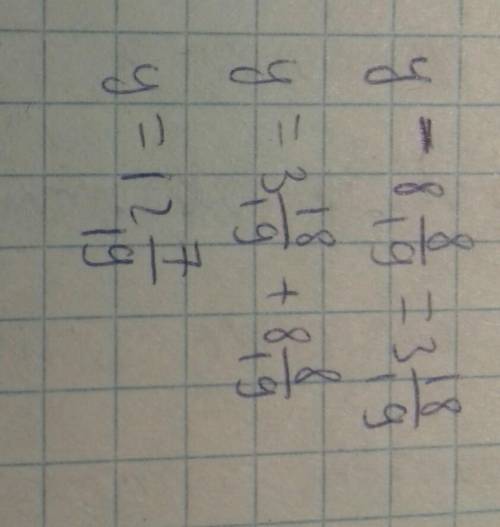 y - 8 8/19 = 3 18/19
y = 3 18/19 + 8 8/19
y = 12 7/19